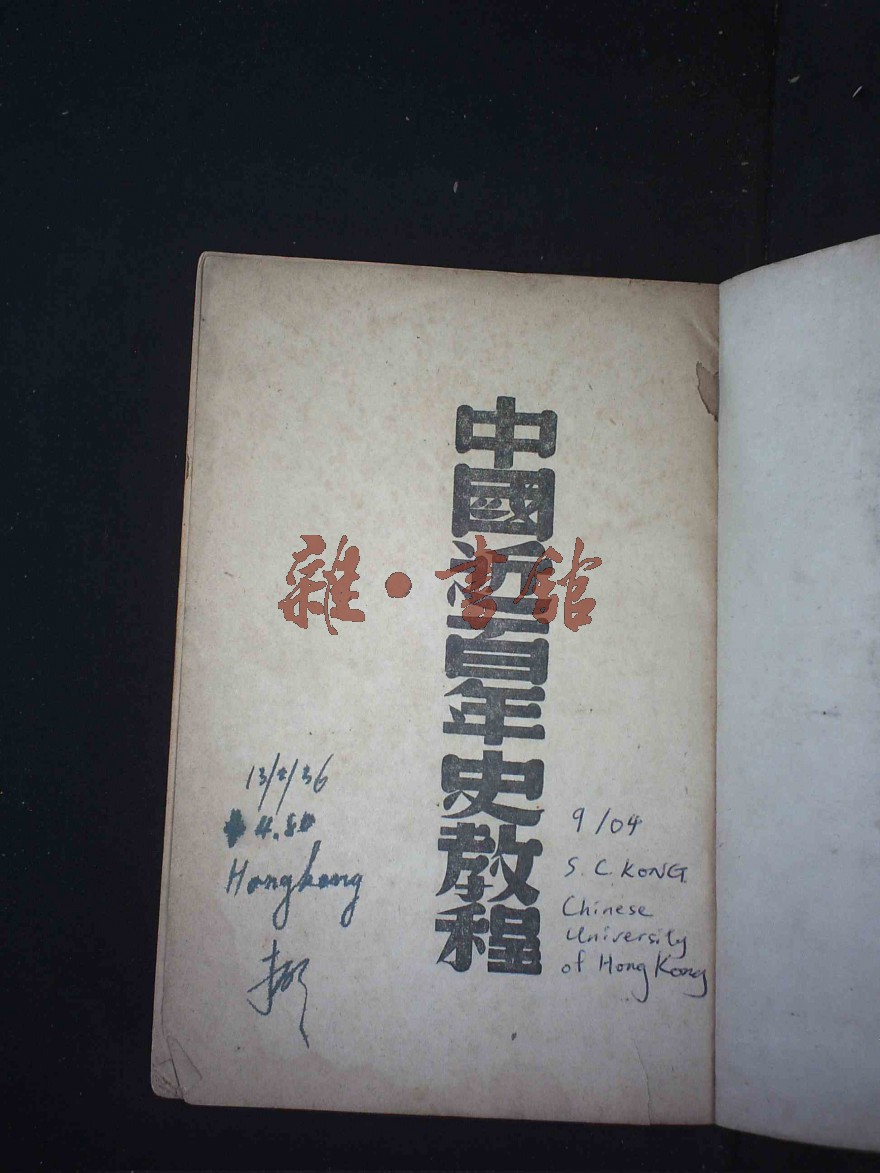 中國近百年史教程
雜·書館
13/2/36
4.80
Hongkong
9/04
S. C. KONG
Chinese
University
of Hong Kong